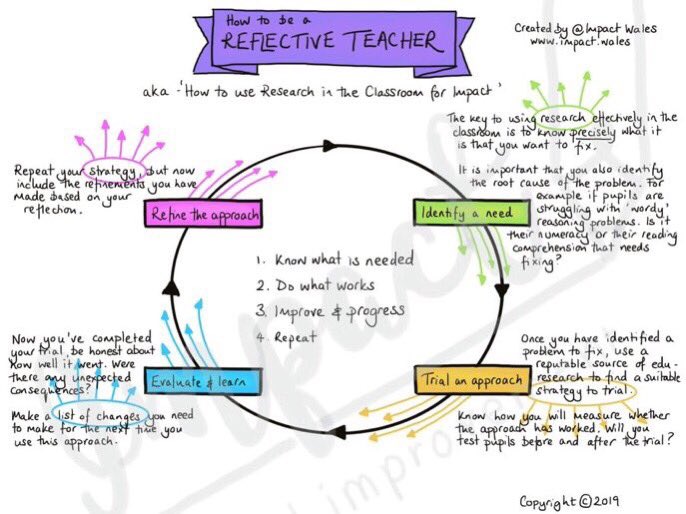 How to be a
REFLECTIVE TEACHER
Created by @Impact Wales
www.impact.wales
aka - 'How to use Research in the Classroom for Impact'
The key to using research effectively in the
classroom is to know precisely what it
is that you want to fix.
It is important that you also identify
the root cause of the problem. For
example if pupils are
struggling with 'wordy'
reasoning problems. Is it
their numeracy or their reading
comprehension that needs
fixing?
Repeat your strategy, but now
include the refinements you have
made based on your
reflection.
Refine the approach
Identify a need
1. Know what is needed
2. Do what works
3. Improve & progress
4. Repeat
Now you've completed
your trial, be honest about
how well it went. Were
there any unexpected
consequences?
Make a list of changes you need
to make for the next time you
use this approach.
Evaluate & learn
Trial an approach
Once you have identified a
problem to fix, use a
reputable source of edu-
research to find a suitable
strategy to trial.
Know how you will measure whether
the approach has worked. Will you
test pupils before and after the trial?
Copyright © 2019